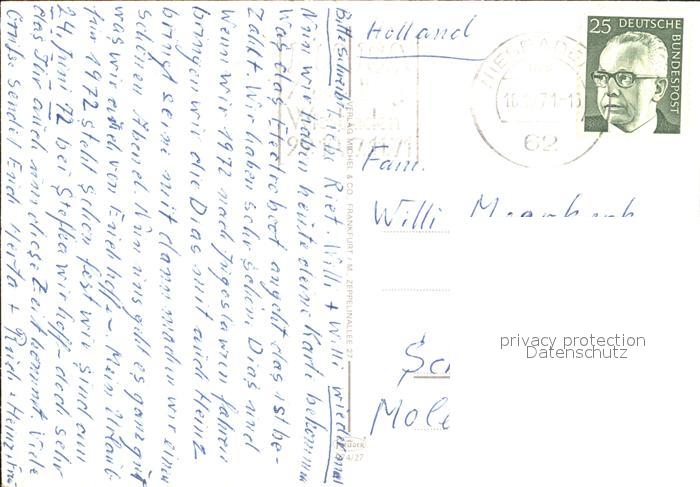 Bitte schreibt
Liebs Riet. Willi + Willi wiedermal
Nun wir haben heute deine Karte bekommen
Was das Electrobert angeht das ist be-
zahlt. Wir haben sehr schöne Dias und
wenn wir 1972 nach Jugoslawien fahren
bringen wir die Dias mit auch Heinz
bringt seine mit dann machen wir einen
schönen Abend. Nun uns geht es ganz gut
was wir auch von Euch hoffen. Mein Urlaub
für 1972 steht schon fest wir sind am
24. Juni 72 bei Stefka wir hoffen doch sehr
das Ihr auch um diese Zeit kommt. Viele
Grüße sendet Euch Herta + Rudi + Heinz
VERLAG MICHEL & CO. FRANKFURT/M. ZEPPELINALLEE 27
4/27
Holland
WIESBADEN
71-1
62
Wiesbaden
25 DEUTSCHE
BUNDESPOST
Fam.
Willi
privacy protection
Datenschutz